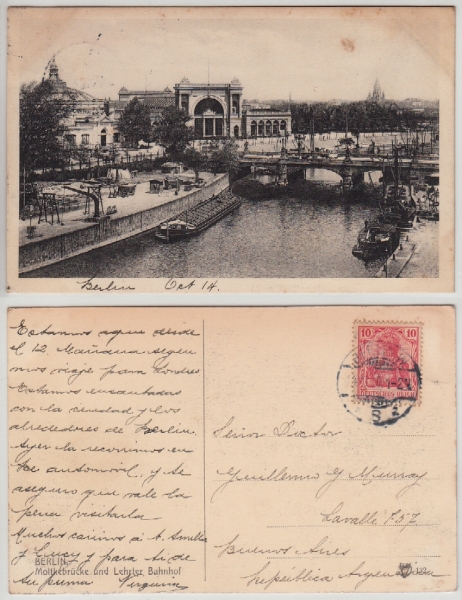 Berlin Oct 14.
Estamos aqui desde
el 12. Mañana segui
mos viaje para Londres
Estamos encantadas
con la ciudad y los
alrededores de Berlin.
Ayer la recorrimos en
automóvil, y te
aseguro que vale la
pena visitarla
Muchos cariños á A. Amelia
y Lucy y para ti de
su prima
BERLIN
Moltkebrücke und Lehrter Bahnhof
10 10
DEUTSCHES REICH
Señor Doctor
Guillermo G Murray
Lavalle 757
Buenos Aires
República Argentina